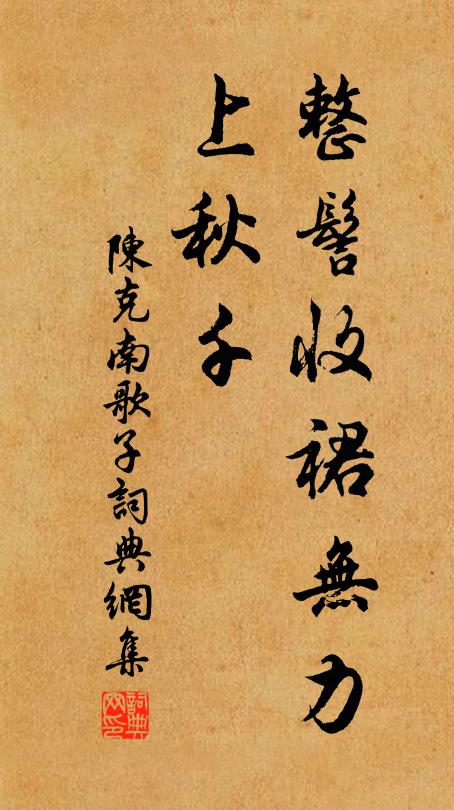 整髻收裙無力
上秋千
陳克南歌子詞典網集
詞典
网印